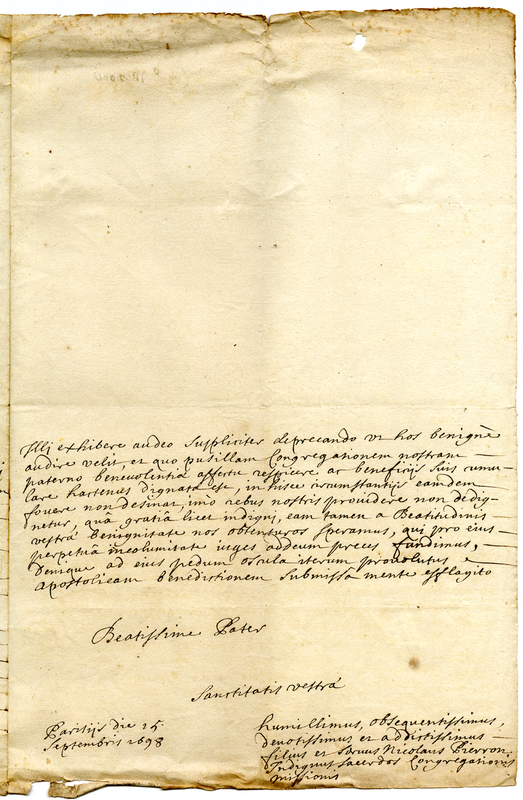 Illi exhibere audeo suppliciter deprecando ut hos benignè
audire velit, et quo pusillam Congregationem nostram
paterno benevolentiæ affectu respicere ac beneficijs suis cumu-
lare hactenus dignata est, in hisce circumstantijs eamdem
fovere non desinat, imò rebus nostris providere non dedig-
netur, quâ gratiâ licet indigni, eam tamen a Beatitudinis
vestræ benignitate nos obtenturos speramus, qui pro eius
perpetuâ incolumitate iuges ad deum preces fundimus,
Denique ad eius pedum oscula iterum provolutus
apostolicam benedictionem submissa mente efflagito
Beatissime Pater
Sanctitatis vestræ
Parisijs die 25
Septembris 1698
humillimus, obsequentissimus,
devotissimus et addictissimus
filius et servus Nicolaus Pierron
Indignus sacerdos Congregationis
missionis